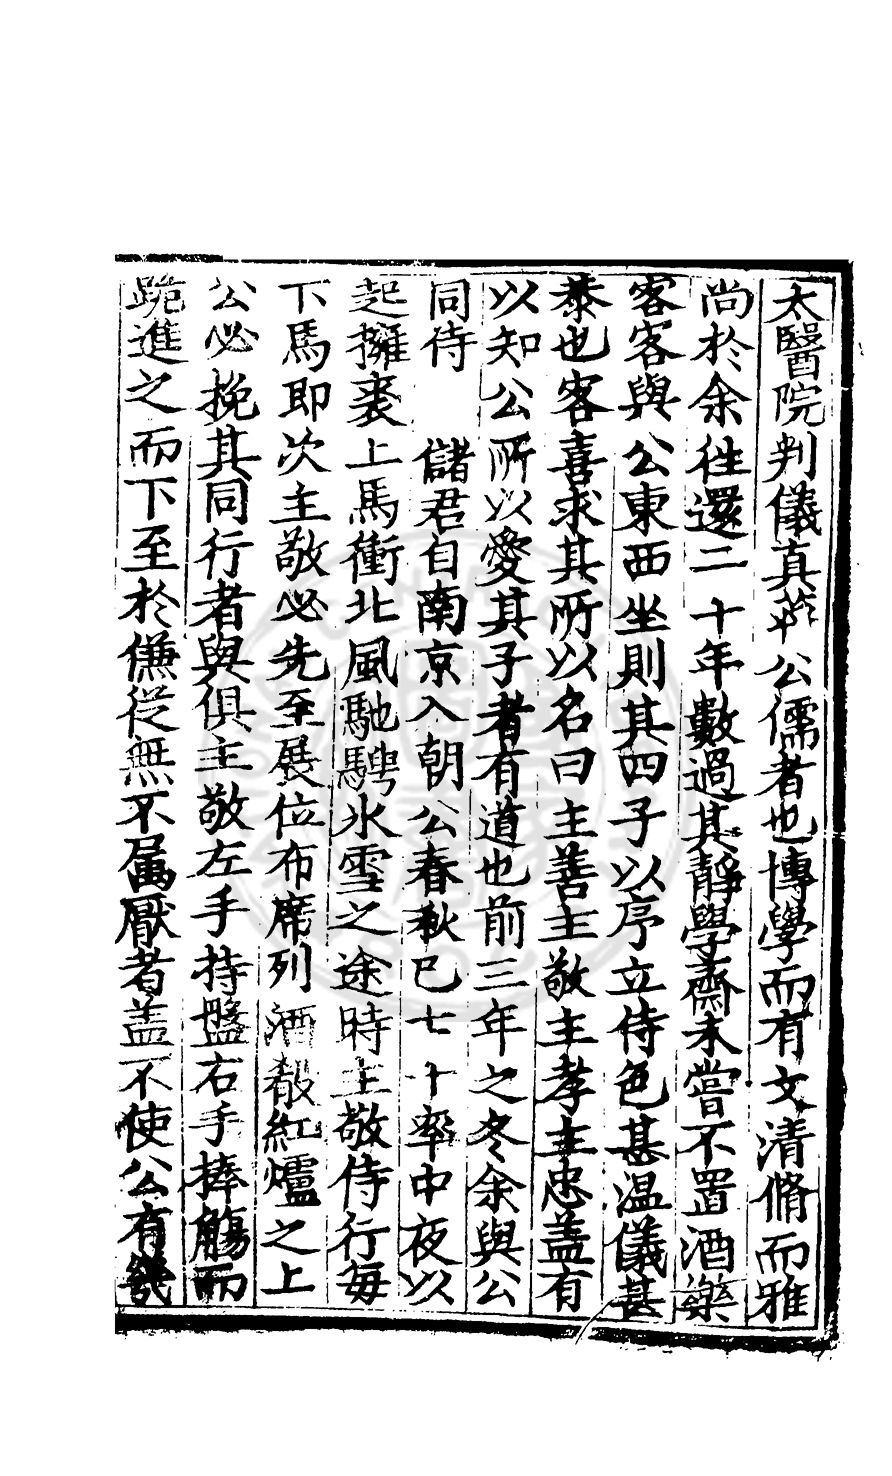 太醫院判儀真蔣公儒者也博學而有文清脩而雅
尚於余徃還二十年數過其靜學齋未嘗不置酒樂
客客與公東西坐則其四子以序立侍色甚温儀甚
恭也客喜求其所以名曰主善主敬主孝主忠盖有
以知公所以愛其子者有道也前三年之冬余與公
同侍 儲君自南京入朝公春秋已七十率中夜以
起擁裘上馬衝北風馳騁氷雪之途時主敬侍行每
下馬即次主敬必先至展位布席列酒殽紅爐之上
公必挽其同行者與俱主敬左手持盤右手捧觴而
跪進之而下至於傔從無不属厭者盖不使公有幾